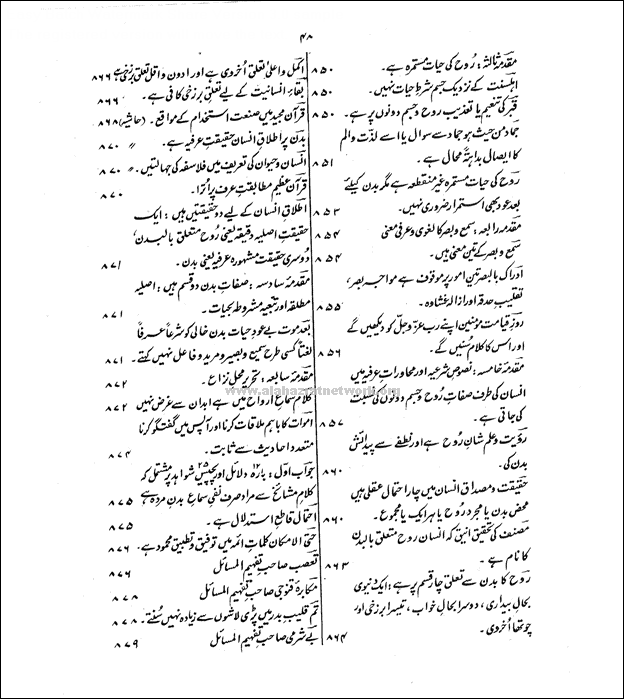 ۴۸
مقدمہ ثالثہ: رُوح کی حیات مستمرہ ہے۔ ۸۵۰
اہلسنت کے نزدیک جسم شرطِ حیات نہیں۔ ۸۵۰
قبر کی تنعیم یا تعذیب روح و جسم دونوں پر ہے۔ ۸۵۰
جماد من حیث ہو جماد سے سوال یا اسے لذّت و الم
کا ایصال بداہۃً محال ہے۔ ۸۵۱
رُوح کی حیات مستمرہ غیر منقطعہ ہے مگر بدن کیلئے
بعد عود بھی استمرار ضروری نہیں۔ ۸۵۳
مقدمہ رابعہ: سمع و بصر کا لغوی و عرفی معنی ۸۵۴
سمع و بصر کے تین معنی ہیں۔ ۸۵۴
ادراک بالبصر تین امور پر موقوف ہے مواجہہ بصر،
تقلیب حدقہ اور ازالۂ غشاوہ۔ ۸۵۵
روزِ قیامت مومنین اپنے رب عزوجل کو دیکھیں گے
اور اس کا کلام سُنیں گے۔ ۸۵۶
مقدمہ خامسہ: نصوصِ شرعیہ اور محاوراتِ عرفیہ میں
انسان کی طرف صفاتِ رُوح و جسم دونوں کی نسبت
کی جاتی ہے۔ ۸۵۷
رؤیت و علم شانِ رُوح ہے اور نطفے سے پیدائش
بدن کی۔ ۸۶۰
حقیقت و مصداق انسان میں چار احتمال عقلی ہیں
محض بدن یا مجرد رُوح یا ہر ایک یا مجموع۔ ۸۶۰
مصنف کی تحقیق انیق کہ انسان روح متعلق بالبدن
کا نام ہے۔ ۸۶۳
رُوح کا بدن سے تعلق چار قسم پر ہے: ایک دنیوی
بحالِ بیداری، دوسرا بحالِ خواب، تیسرا برزخی اور
چوتھا اُخروی۔ ۸۶۴
اکمل و اعلیٰ تعلق اُخروی ہے اور ادون و اقل تعلق برزخی ہے ۸۶۶
بقاءِ انسانیت کے لیے تعلق برزخی کافی ہے۔ ۸۶۶
قرآن مجید میں صنعتِ استخدام کے مواقع۔ (حاشیہ) ۸۶۸
بدن پر اطلاقِ انسان حقیقتِ عرفیہ ہے۔ ″ ۸۷۰
انسان و حیوان کی تعریف میں فلاسفہ کی جہالتیں۔ ″ ۸۷۰
قرآن عظیم مطابقتِ عرف پر اُترا۔ ۸۷۰
اطلاقِ انسان کے لیے دو حقیقتیں ہیں: ایک
حقیقتِ اصلیہ دقیقہ یعنی رُوح متعلق بالبدن،
دوسری حقیقت مشہورہ عرفیہ یعنی بدن۔ ۸۷۱
مقدمہ سادسہ: صفاتِ بدن دو قسم ہیں: اصلیہ
مطلقہ اور تبعیہ مشروطہ بحیات۔ ۸۷۱
بعد موت بے عودِ حیات بدن خالی کو شرعاً عرفاً
لغتاً کسی طرح سمیع و بصیر و مرید و فاعل نہیں کہتے۔ ۸۷۱
مقدمہ سابعہ: تحریرِ محلِ نزاع۔ ۸۷۲
www.alahazratnetwork.org
کلام سماعِ ارواح میں ہے ابدان سے غرض نہیں ۸۷۲
اموات کا باہم ملاقات کرنا اور آپس میں گفتگو کرنا
متعدد احادیث سے ثابت۔ ۸۷۴
جواب اوّل: بارہ ۱۲ دلائل اور پچیس ۲۵ شواہد پر مشتمل کہ
کلامِ مشائخ سے مراد صرف نفیِ سماعِ بدن مردہ ہے ۸۷۵
احتمال قاطعِ استدلال ہے۔ ۸۷۵
حتی الامکان کلماتِ ائمہ میں توفیق و تطبیق محمود ہے۔ ۸۷۶
تعصب صاحبِ تفہیم المسائل ۸۷۶
مکابرۂ قنوجی صاحبِ تفہیم المسائل ۸۷۸
تم قلیبِ بدر میں پڑی لاشوں سے زیادہ نہیں سُنتے۔ ۸۷۸
بے شرمی صاحبِ تفہیم المسائل ۸۷۹